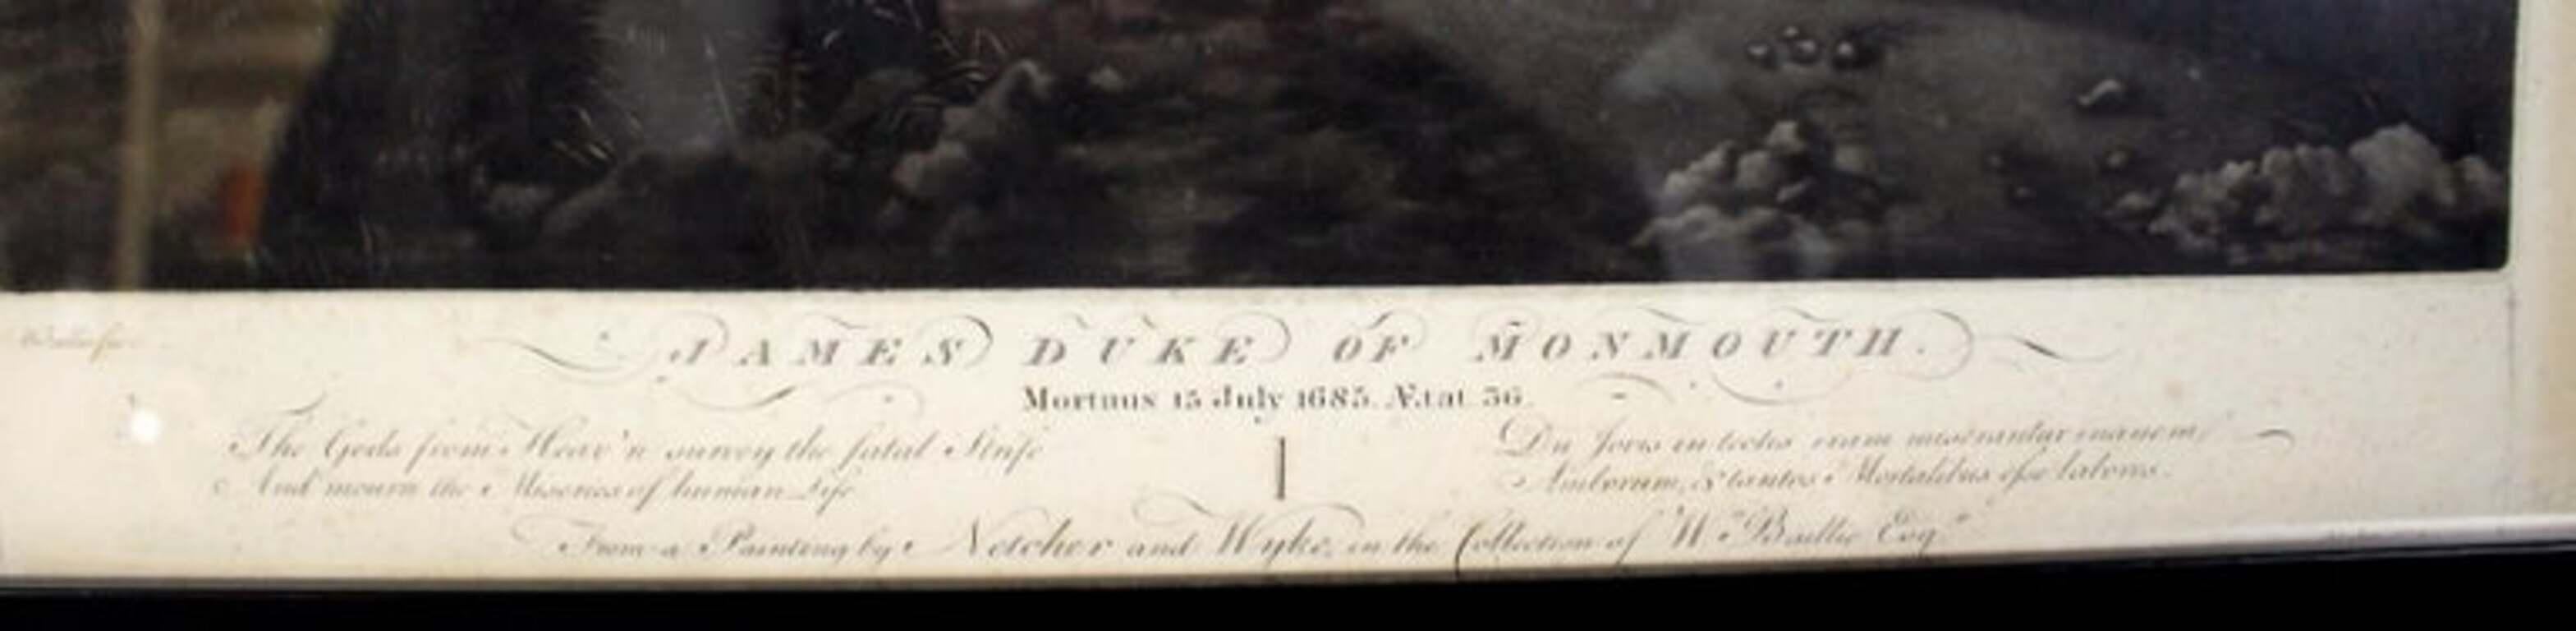 JAMES DUKE OF MONMOUTH.
Mortuus 15 July 1685. Ætat 36.
The Gods from Heav'n survey the fatal Strife
And mourn the Miseries of human Life
Dii Jovis in tectis iram miserantur inanem
Amborum, & tantos Mortalibus esse labores.
From a Painting by Netcher and Wyke, in the Collection of Wm. Baillie Esqr.